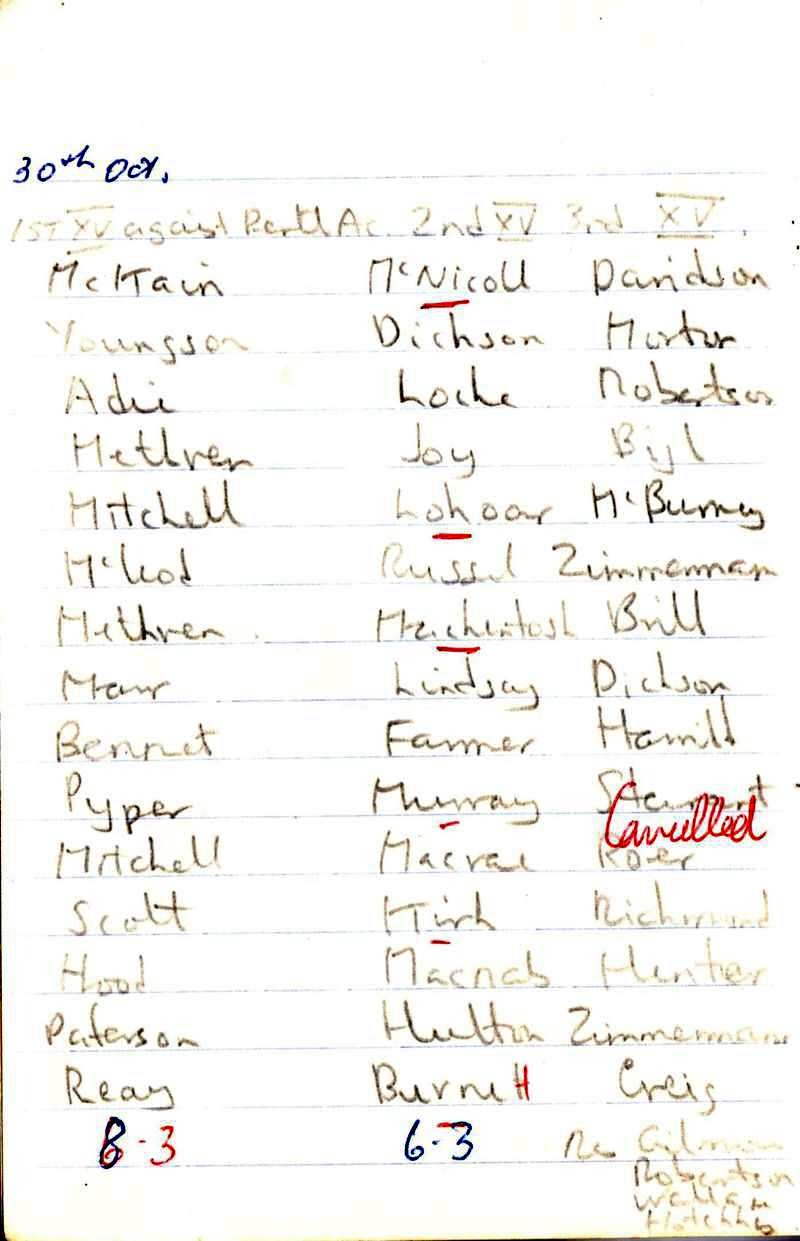 30th Oct.
1ST XV against Perth Ac. 2nd XV 3rd XV.
McKain McNicoll Davidson
Youngson Dickson Morton
Adie Locke Robertson
Methven Joy Bijl
Mitchell Lohoar McBurney
McLeod Russel Zimmerman
Methven Mackintosh Brill
Marr Lindsay Dickson
Bennet Farmer
Pyper Murray Stewart
Cancelled
Mitchell Macrae
Scott Kirk Richmond
Hood Macnab Hunter
Paterson Hutton Zimmerman
Reay Burnett Creig
8-3 6-3 Res Gilmour
Robertson